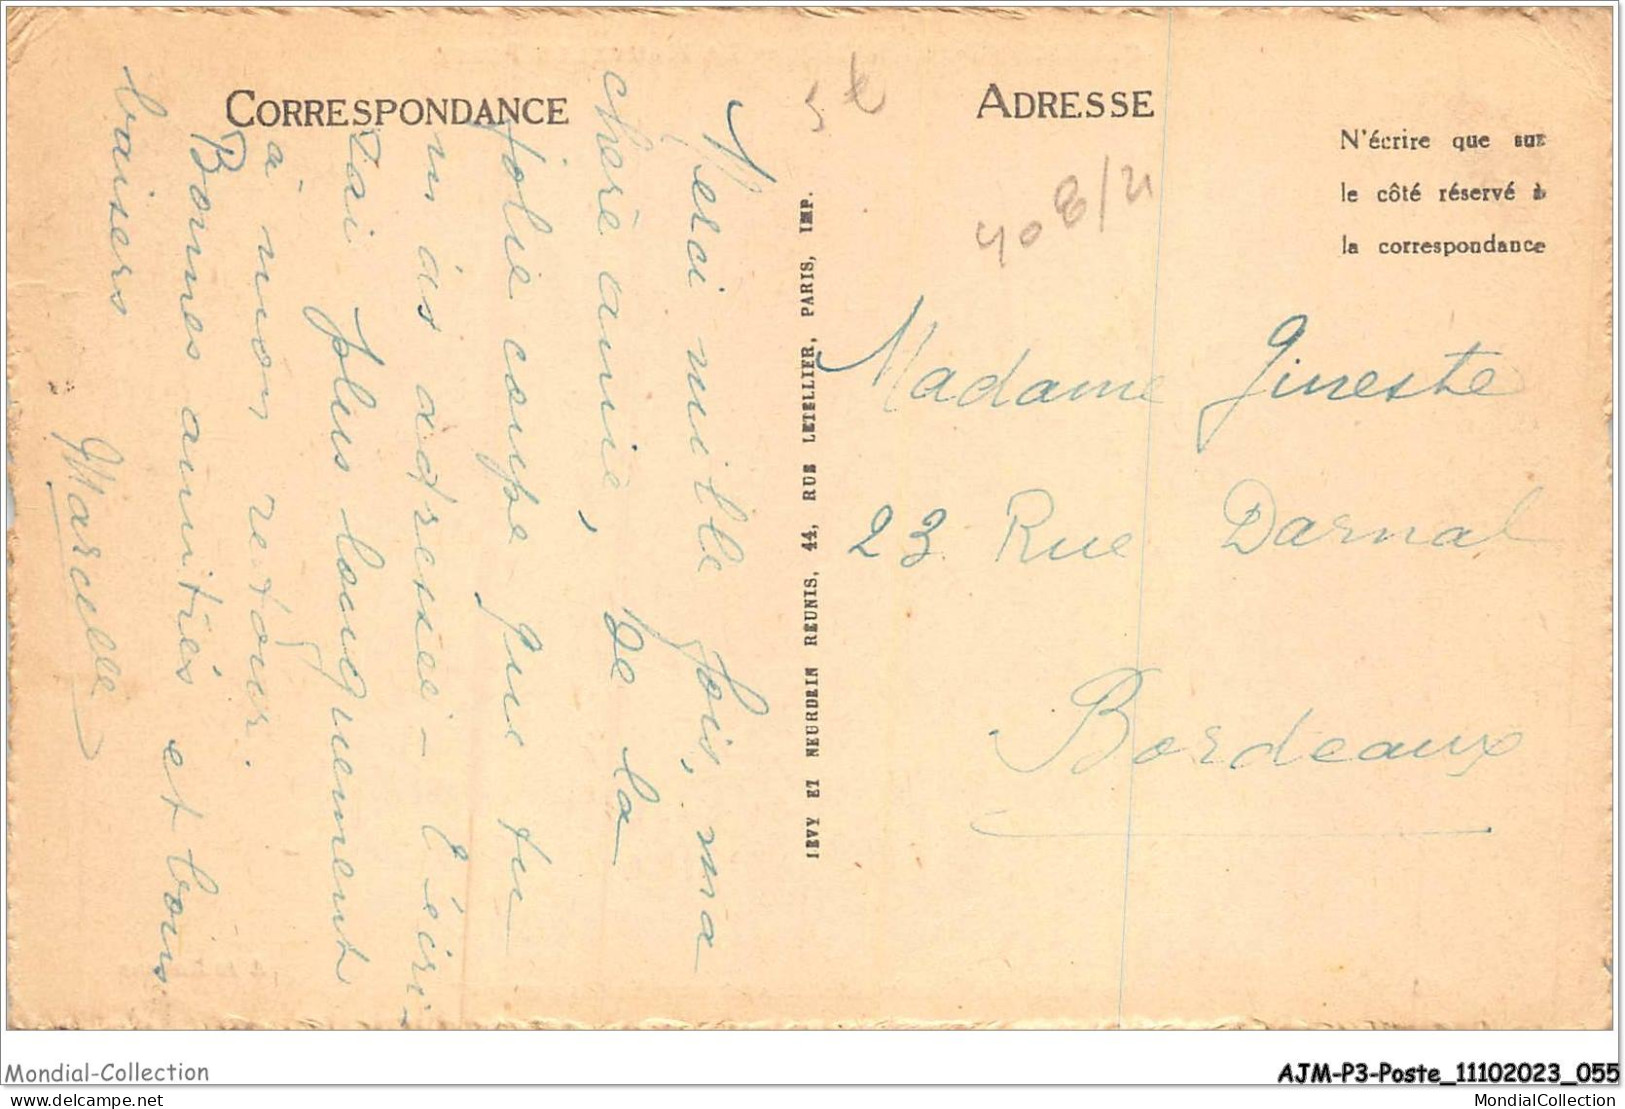 CORRESPONDANCE
Merci mille fois, ma
chère amie, de la
jolie coupe que tu
m'as adressée - t'écri-
rai plus longuement
à mon retour.
Bonnes amitiés et bons
baisers
Marcelle
LEVY ET NEURDEIN RÉUNIS, 44, RUE LETELLIER, PARIS, IMP.
ADRESSE
N'écrire que sur
le côté réservé à
la correspondance
408/21
Madame Gineste
23 Rue Darnal
Bordeaux
Mondial-Collection
AJM-P3-Poste_11102023_055
delcampe.net
MondialCollection